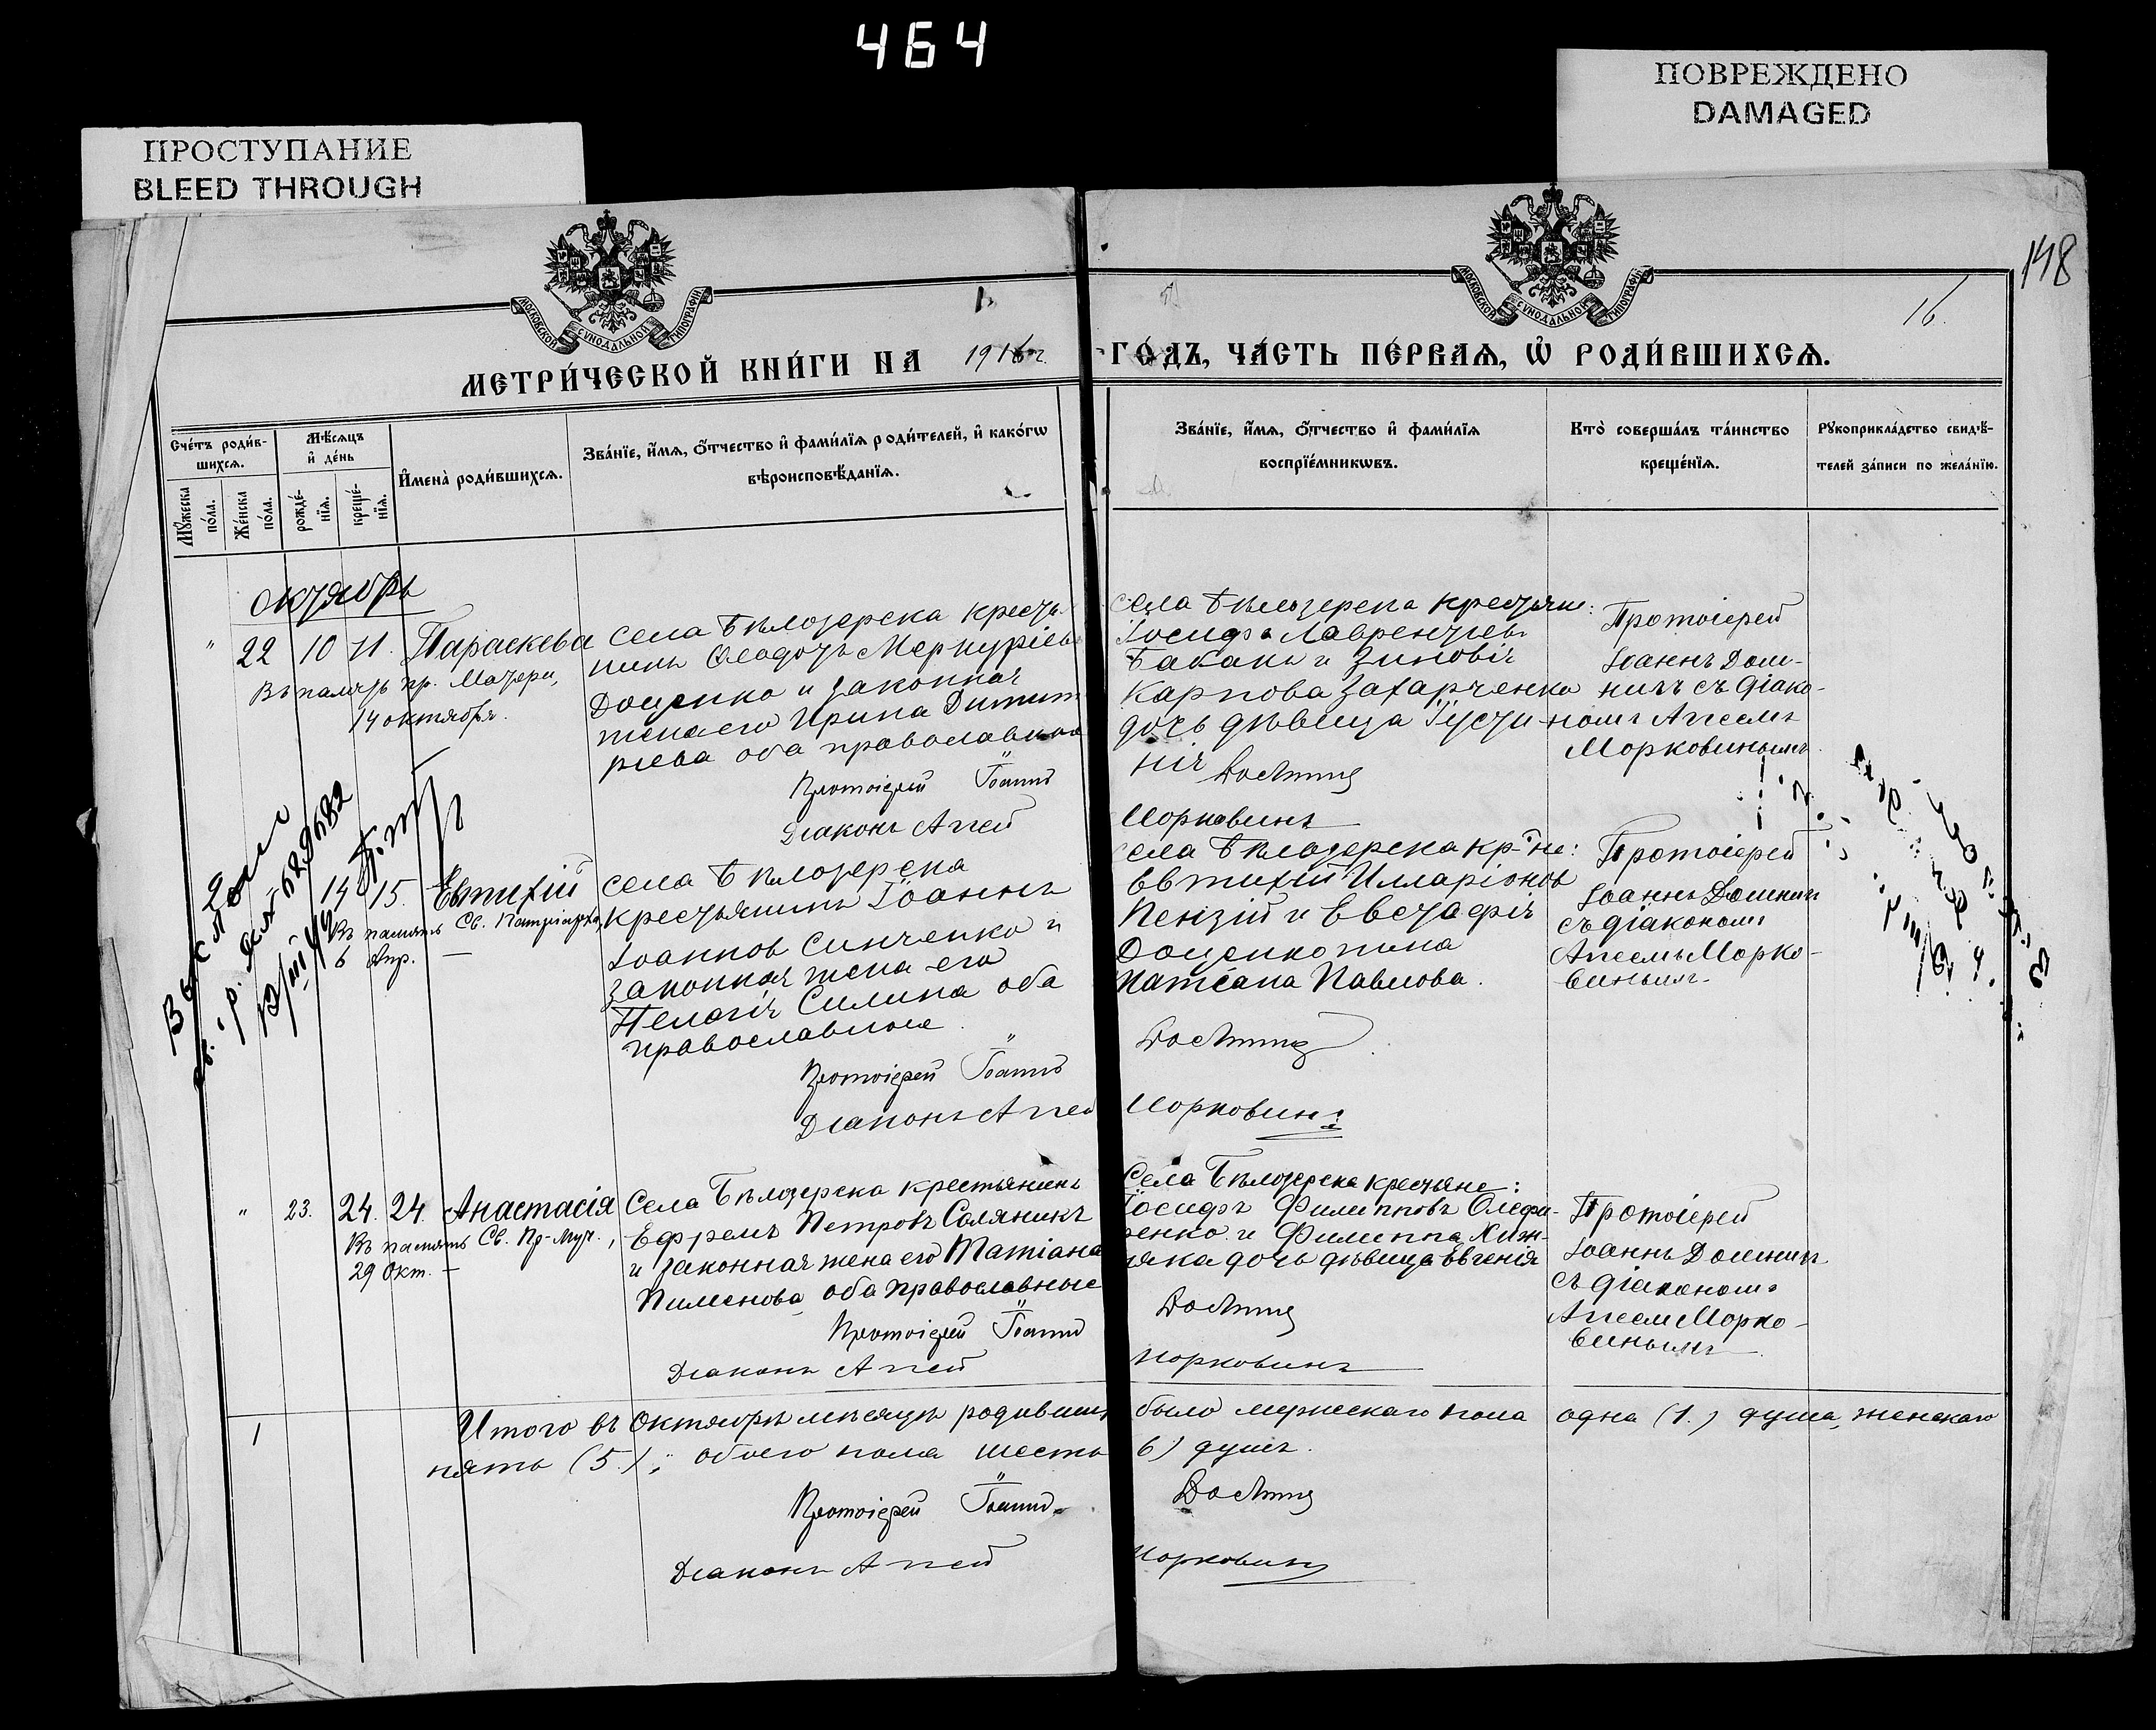 464
ПРОСТУПАНИЕ
BLEED THROUGH
ПОВРЕЖДЕНО
DAMAGED
148
16.
МОСКОВСКОЙ СУНОДАЛЬНОЙ ТИПОГРАФІИ
МОСКОВСКОЙ СУНОДАЛЬНОЙ ТИПОГРАФІИ
МЕТРИ́ЧЕСКОЙ КНИ́ГИ НА 1916 г. ГО́ДЪ, ЧА́СТЬ ПЕ́РВАѦ, Ѽ РОДИ́ВШИХСѦ.
Сче́тъ роди́вшихсѧ.
Мꙋжеска по́ла.
Же́нска по́ла.
Мѣ́сѧцъ и҆ де́нь
рожде́нїѧ.
креще́нїѧ.
И҆мена̀ роди́вшихсѧ.
Зва́нїе, и҆́мѧ, ѻ҆́тчество и҆ фами́лїѧ роди́телей, и҆ како́гѡ
вѣроисповѣ́данїѧ.
Зва́нїе, и҆́мѧ, ѻ҆́тчество и҆ фами́лїѧ
воспрїе́мникѡвъ.
Кто̀ соверша́лъ та́инство
креще́нїѧ.
Рꙋкоприкла́дство свидѣ́-
телей за́писи по жела́нїю.
октябрь
" 22 10 11. Параскева
Въ память пр. Матери,
14 октября.
села Бѣлозерска крестья
нинъ Ѳеодотъ Меркуріевъ
Доценко и законная
жена его Ирина Димит
ріева оба православные
Протоіерей Іоаннъ
Діаконъ Аггей
села Бѣлозерска крестьяне:
Іосифъ Лаврентіевъ
Бакань и Зиновія
Карпова Захарченко
дочь дѣвица Іусти
нія
Морковинъ
Протоіерей
Іоаннъ
съ діако-
номъ Аггеемъ
Морковинымъ
14 15. Евтихій
Въ память Св. Патріарха,
6 Апр. —
села Бѣлозерска
крестьянинъ Іоаннъ
Іоанновъ Синченко и
законная жена его
Пелагія Силина оба
православные.
Протоіерей Іоаннъ
Діаконъ Аггей
села Бѣлозерска кр-не:
Евтихій Илларіоновъ
Пензій и Евстафія
Доценко жена
Татіана Павлова.
Морковинъ
Протоіерей
Іоаннъ
съ діакономъ
Аггеемъ Морко-
винымъ
" 23. 24. 24. Анастасія
Въ память Св. Пр-Муч.,
29 Окт. —
Села Бѣлозерска крестьянинъ
Ефремъ Петровъ Саляникъ
и законная жена его Татіана
Пименова оба православные
Протоіерей Іоаннъ
Діаконъ Аггей
Села Бѣлозерска крестьяне:
Іосифъ Филипповъ Олефи-
ренко и Филиппа Хиж-
няка дочь дѣвица Евгенія
Морковинъ
Протоіерей
Іоаннъ
съ діакономъ
Аггеем Морко-
винымъ
1 Итого въ Октябрѣ мѣсяцѣ родивших было мужескаго пола одна (1.) душа, женскаго
пять (5.), обоего пола шесть 6) душъ.
Протоіерей Іоаннъ
Діаконъ Аггей Морковинъ